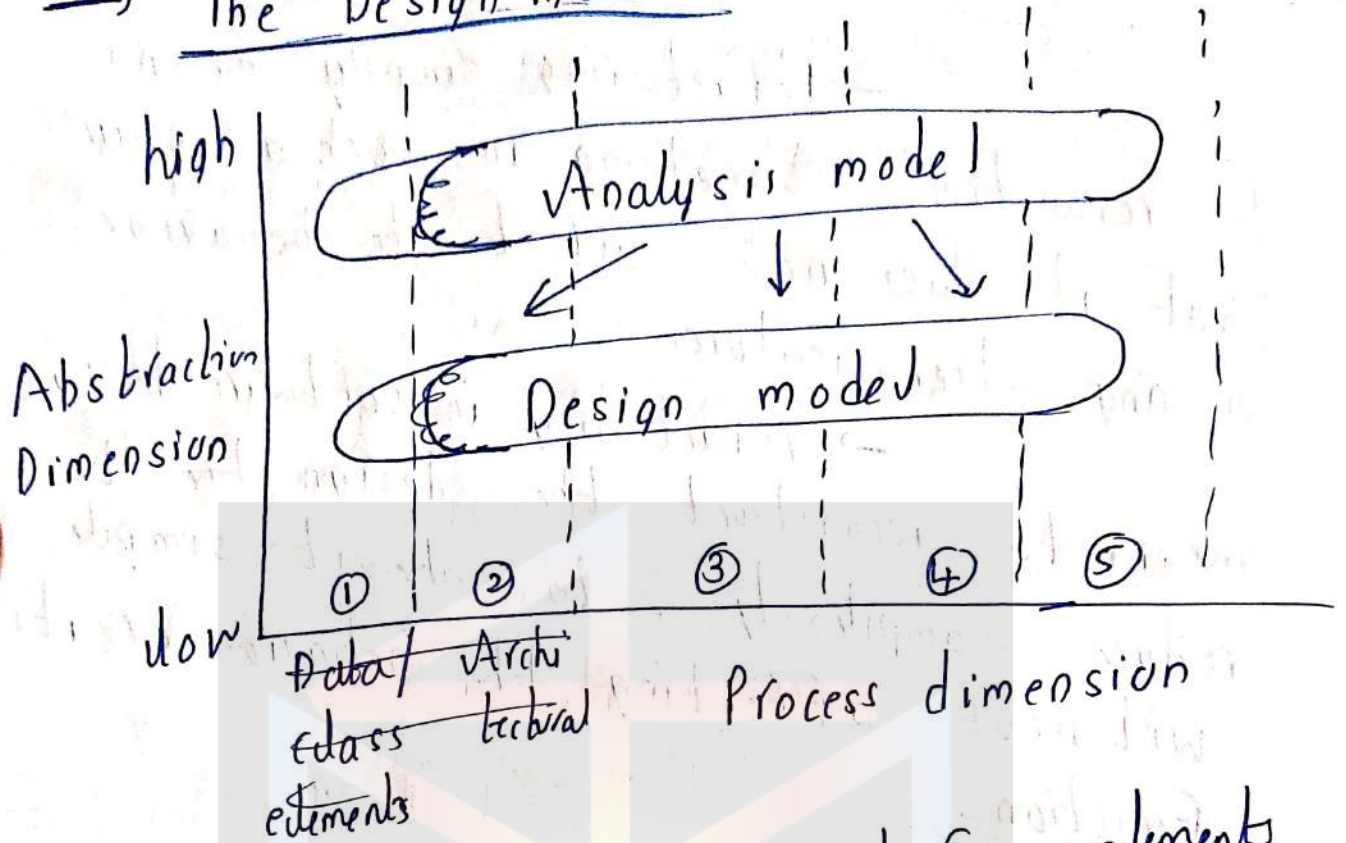 The Design
high
Analysis model
Abstraction
Dimension
Design model
① ② ③ ④ ⑤
low
Data/ Archi
class tectural
elements
Process dimension
elements